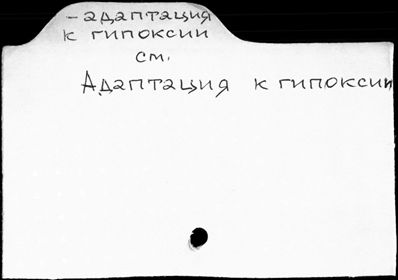 - адаптация
к гипоксии
см.
Адаптация к гипоксии